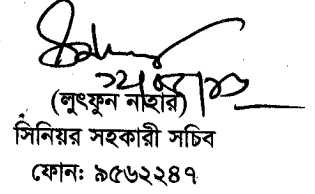 (লুৎফুন নাহার)
সিনিয়র সহকারী সচিব
ফোন: ৯৫৬২২৪৭